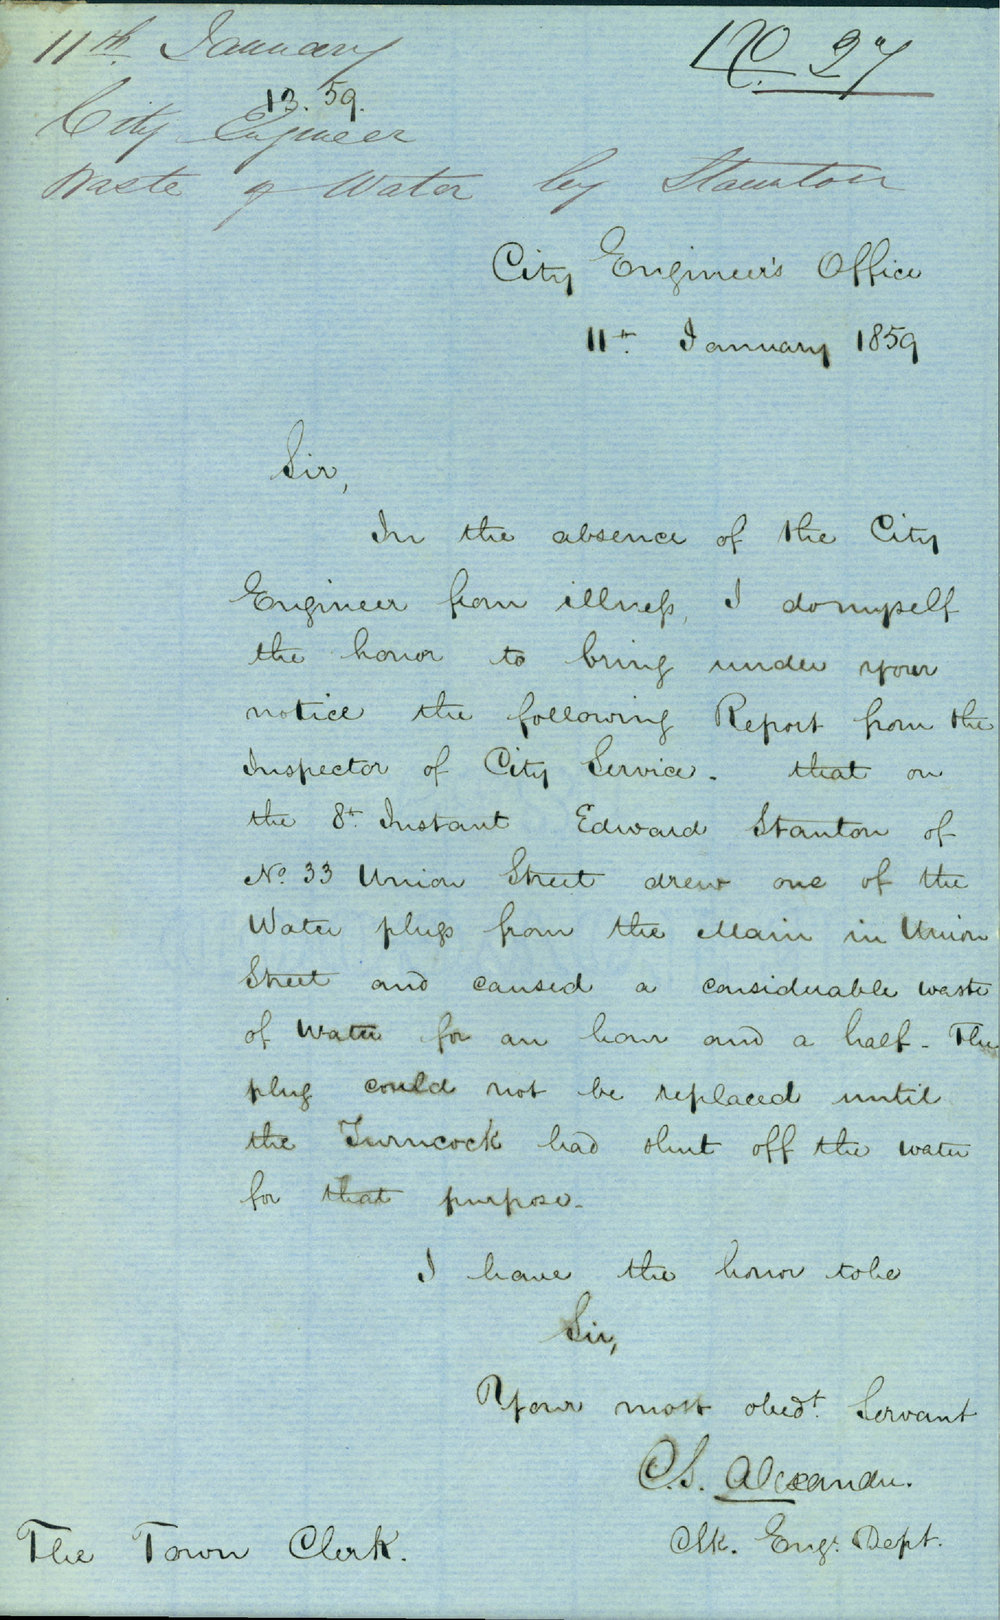 11th January
No. 27
13. 59.
City Engineer
Waste of Water by Staunton
City Engineer's Office
11th January 1859
Sir,
In the absence of the City
Engineer from illness, I do myself
the honor to bring under your
notice the following Report from the
Inspector of City Service. that on
the 8t. Instant Edward Stanton of
No. 33 Union Street drew one of the
Water plugs from the Main in Union
Street and caused a considerable waste
of Water for an hour and a half. The
plug could not be replaced until
the Turncock had shut off the water
for that purpose.
I have the honor to be
Sir,
Your most obedt. Servant
C.S. Alexander.
Clk. Engr. Dept.
The Town Clerk.